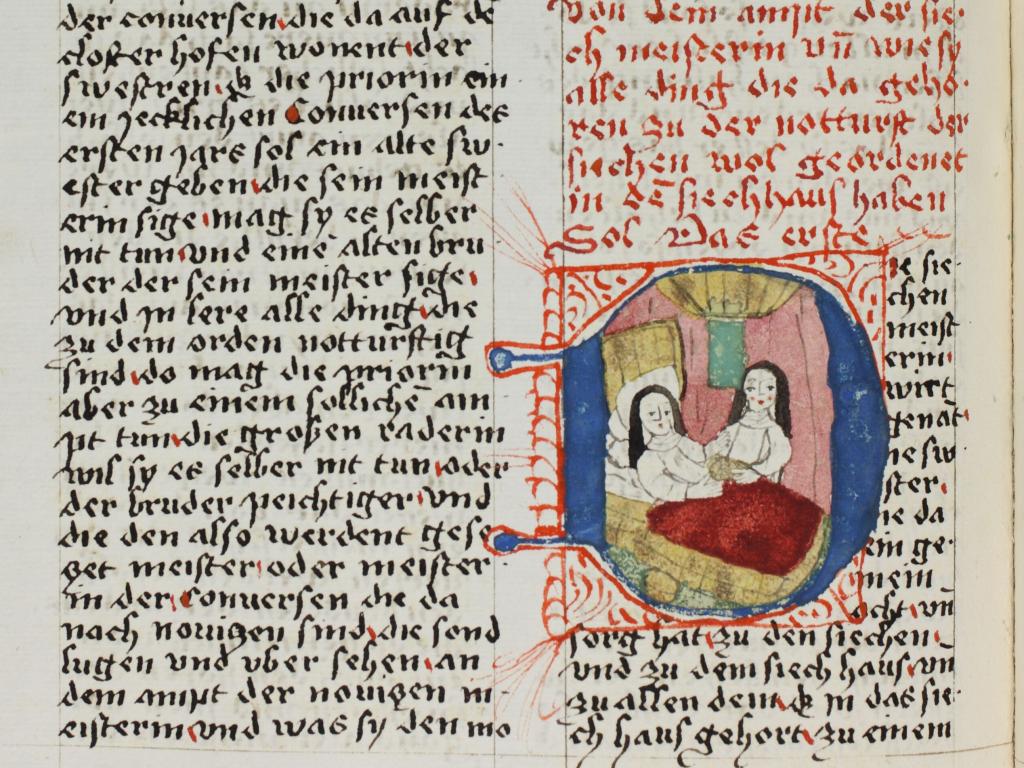 der conversen die da auf de
closter hofen wonent der
swestren & die priorin ein
ein jecklichen Conversen des
ersten jars sol ein alte sw
ester geben die sein meist
erin sige mag sy es selber
nit tun und eine alten bru
der der sein meister sige
vnd in lere alle ding die
zu dem orden notturftig
sind do mag die priorin
aber zu einem sollichē am
pt tun die großen raderin
wil sy es selber nit tun oder
der bruder peichtiger vnd
die den also werdent gese
zet meister oder meister
in der Conversen die da
nach novizen sind die sond
lugen vnd vber sehen an
dem ampt der novizen m
eisterin vnd was sy den mo
Von dem ampt der sie
ch meisterin vn̄ wie sy
alle ding die da geho
ren zu der notturft der
siechen wol geordenet
in dē siechhaus haben
Sol Das erste
Die sie
chen
meist
erin
wirt
genāt
die sw
ster
die da
ein ge
mein
acht vn̄
sorg hat zu den siechen
vnd zu dem siech haus vn̄
zu allen dem & in das sie
ch haus gehort zu einem